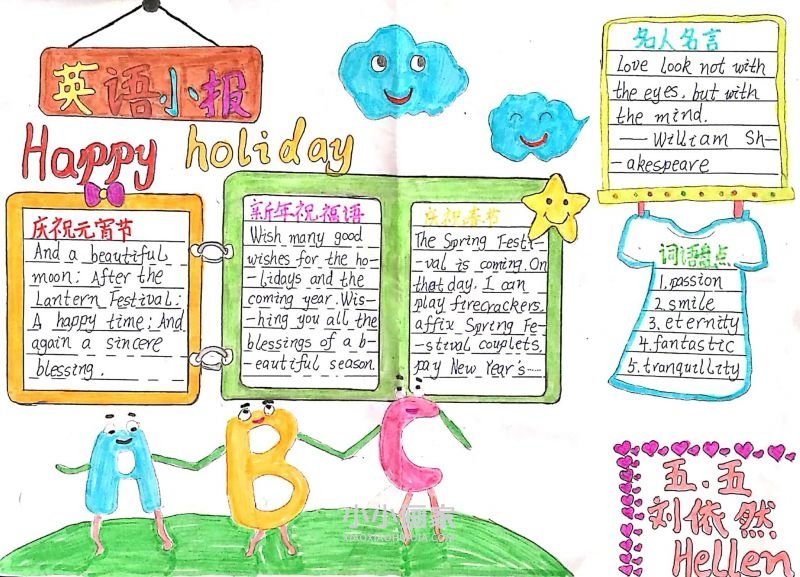 英语小报
Happy holiday
庆祝元宵节
And a beautiful
moon; After the
Lantern Festival;
A happy time; And
again a sincere
blessing.
新年祝福语
Wish many good
wishes for the ho-
-lidays and the
coming year. Wis-
-hing you all the
blessings of a b-
-eautiful season.
庆祝春节
The Spring Festi-
-val is coming. On
that day. I can
play firecrackers.
affix Spring Fe-
-stival couplets,
pay New Year's......
名人名言
Love look not with
the eyes, but with
the mind.
—— William Sh-
-akespeare
词语盘点
1.passion
2.smile
3.eternity
4.fantastic
5.tranquillity
A B C
五.五
刘依然
Hellen
小小画家
XIAOXIAOHUAJIA.COM